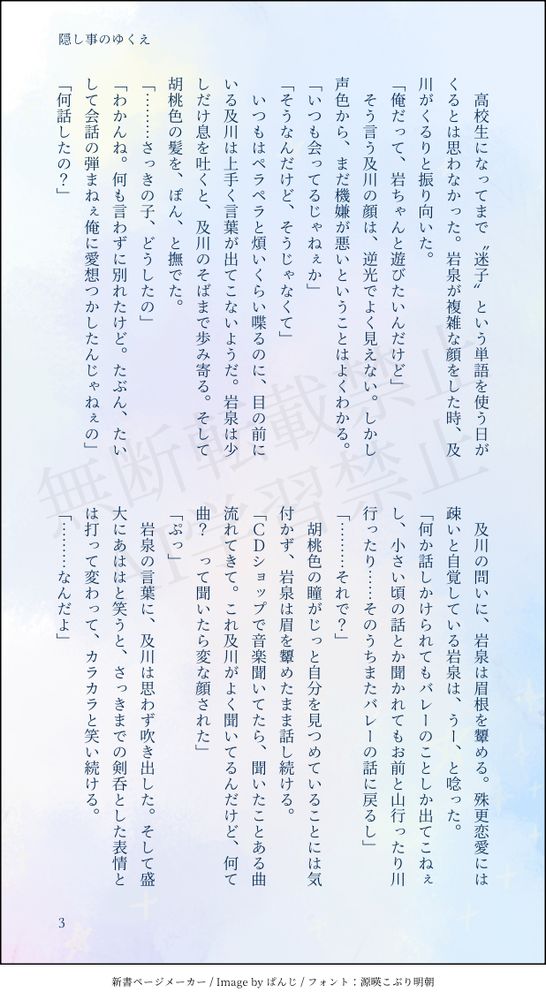 隠し事のゆくえ
　高校生になってまで〝迷子〟という単語を使う日が
くるとは思わなかった。岩泉が複雑な顔をした時、及
川がくるりと振り向いた。
「俺だって、岩ちゃんと遊びたいんだけど」
　そう言う及川の顔は、逆光でよく見えない。しかし
声色から、まだ機嫌が悪いということはよくわかる。
「いつも会ってるじゃねぇか」
「そうなんだけど、そうじゃなくて」
　いつもはペラペラと煩いくらい喋るのに、目の前に
いる及川は上手く言葉が出てこないようだ。岩泉は少
しだけ息を吐くと、及川のそばまで歩み寄る。そして
胡桃色の髪を、ぽん、と撫でた。
「………さっきの子、どうしたの」
「わかんね。何も言わずに別れたけど。たぶん、たい
して会話の弾まねぇ俺に愛想つかしたんじゃねぇの」
「何話したの？」
　及川の問いに、岩泉は眉根を顰める。殊更恋愛には
疎いと自覚している岩泉は、うー、と唸った。
「何か話しかけられてもバレーのことしか出てこねぇ
し、小さい頃の話とか聞かれてもお前と山行ったり川
行ったり……そのうちまたバレーの話に戻るし」
「………それで？」
　胡桃色の瞳がじっと自分を見つめていることには気
付かず、岩泉は眉を顰めたまま話し続ける。
「ＣＤショップで音楽聞いてたら、聞いたことある曲
流れてきて。これ及川がよく聞いてるんだけど、何て
曲？　って聞いたら変な顔された」
「ぷっ」
　岩泉の言葉に、及川は思わず吹き出した。そして盛
大にあははと笑うと、さっきまでの剣呑とした表情と
は打って変わって、カラカラと笑い続ける。
「………なんだよ」
無断転載禁止
AI学習禁止
3
新書ページメーカー / Image by ぱんじ / フォント：源暎こぶり明朝